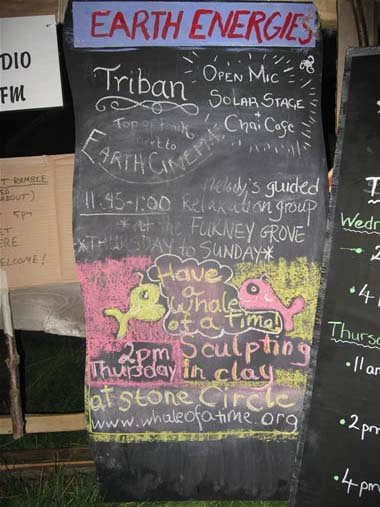 EARTH ENERGIES
DIO
FM
Triban
OPEN MIC
SOLAR STAGE
+
Chai Cafe
Top of Field
next to
EARTH CINEMA
11.45-1:00 Melody's guided
Relaxation group
*at the FURNEY GROVE
*THURSDAY to SUNDAY*
Have
a
Whale
of a Time!
2pm
Thursday
Sculpting
in clay
at Stone Circle
www.whaleofatime.org
T RAMBLE
ABOUT)
5pm
ET
ERE
ELCOME!
Wedn
Thursd
11am
2pm
4pm